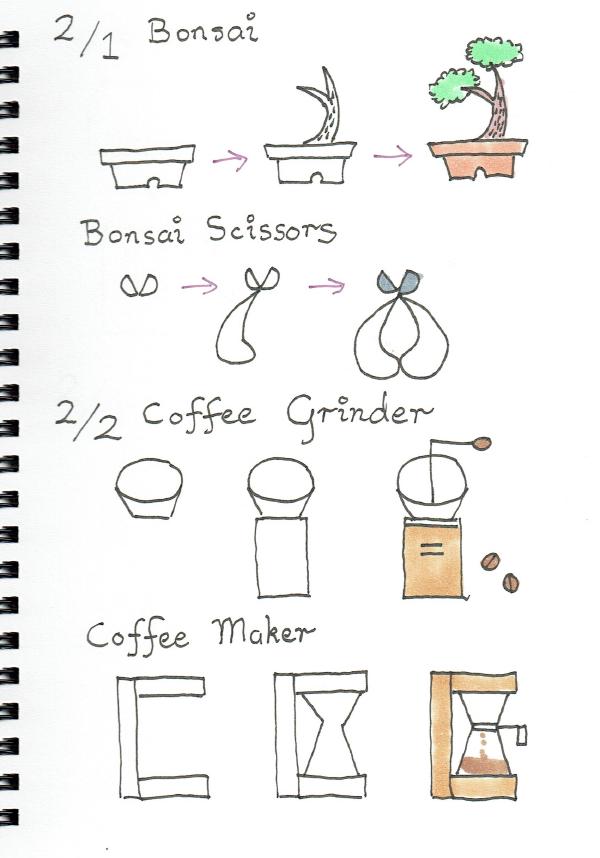 2/1 Bonsai
Bonsai Scissors
2/2 Coffee Grinder
Coffee Maker